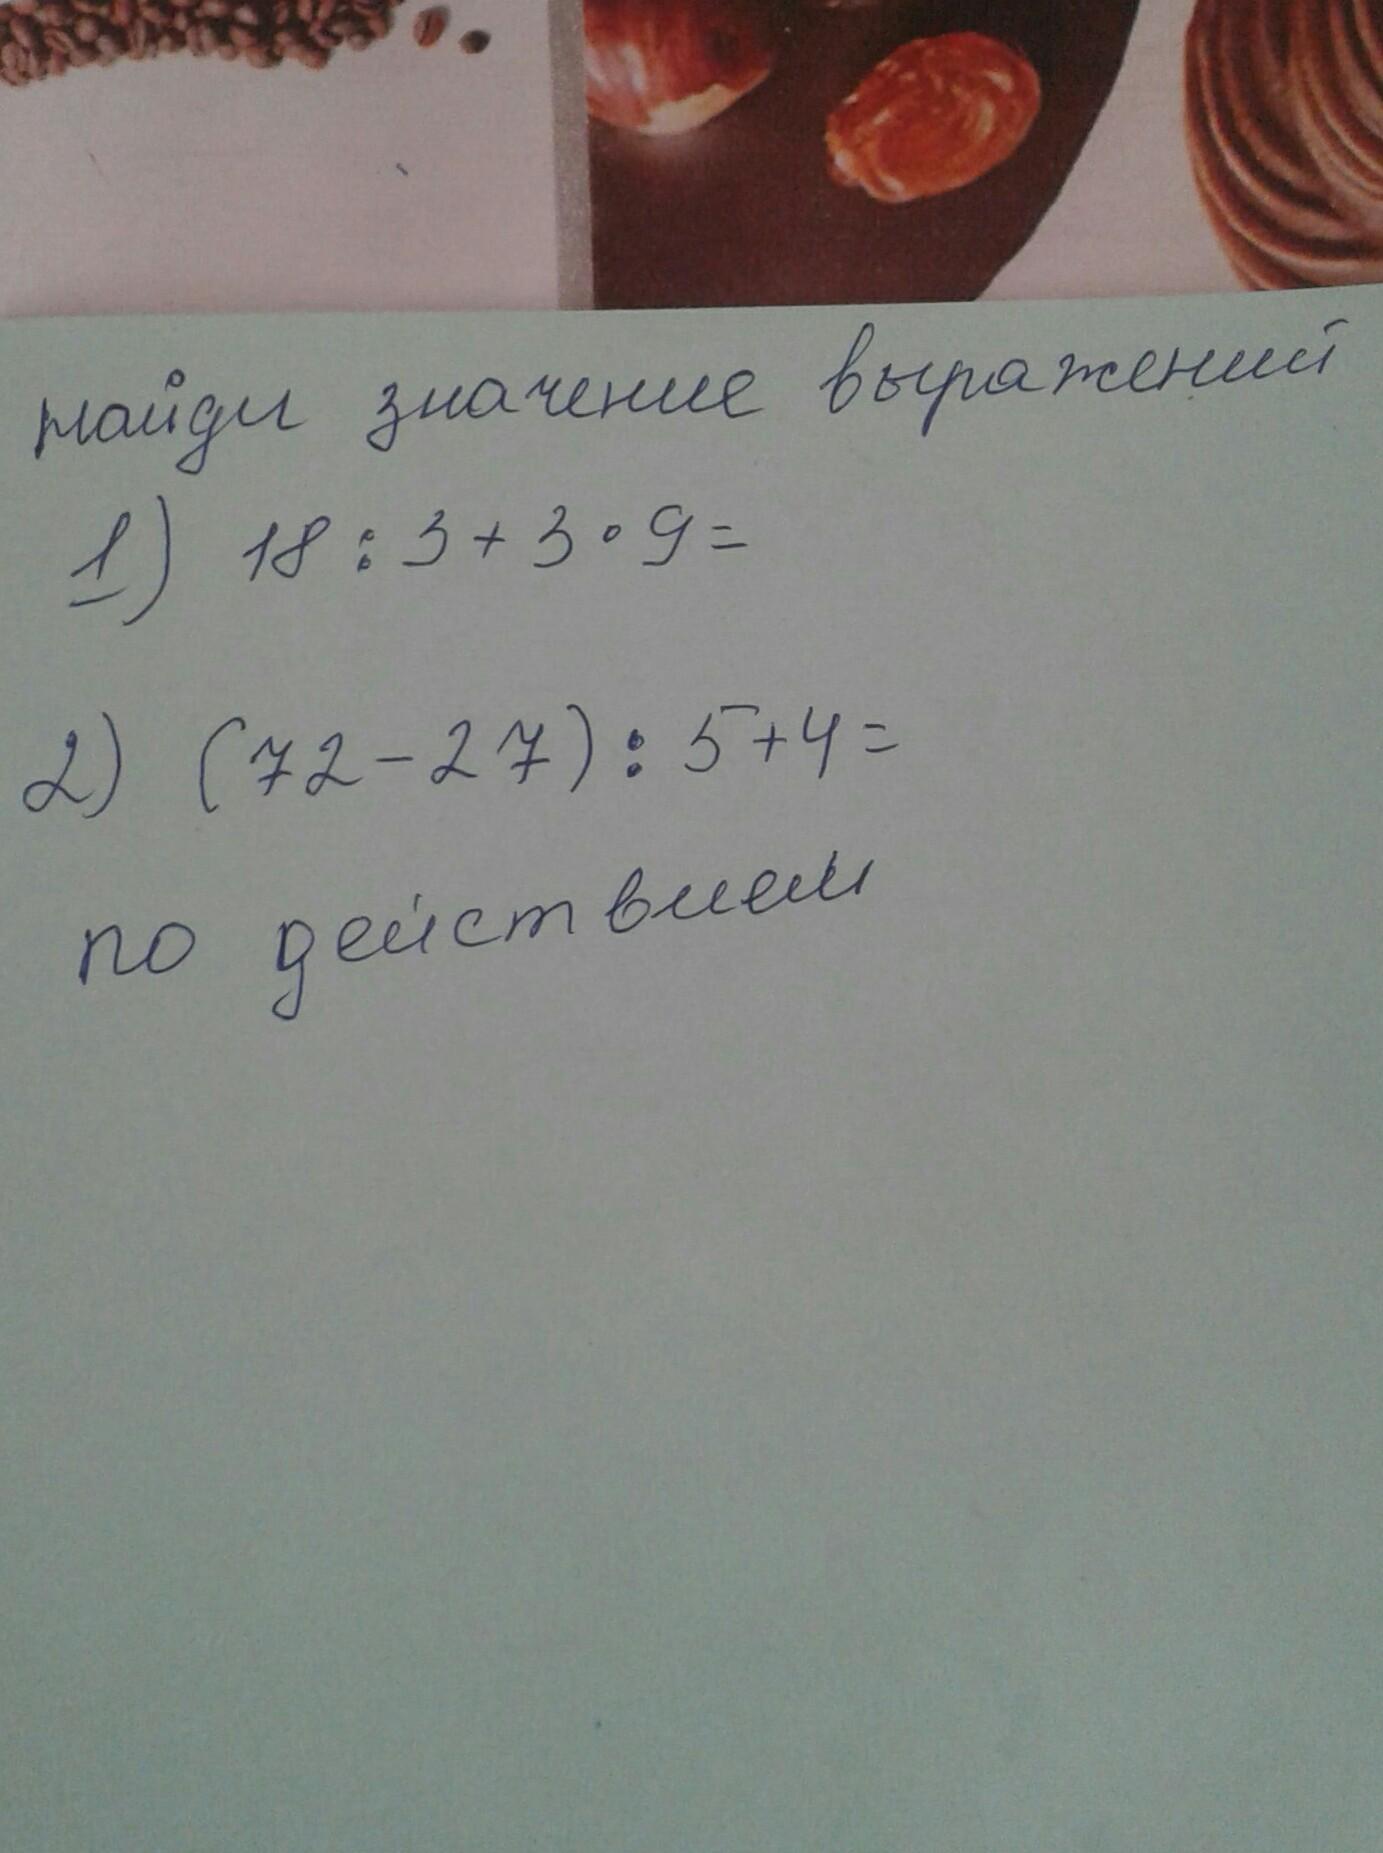 найди значение выражений
1) 18 : 3 + 3 · 9 =
2) (72 - 27) : 5 + 4 =
по действием